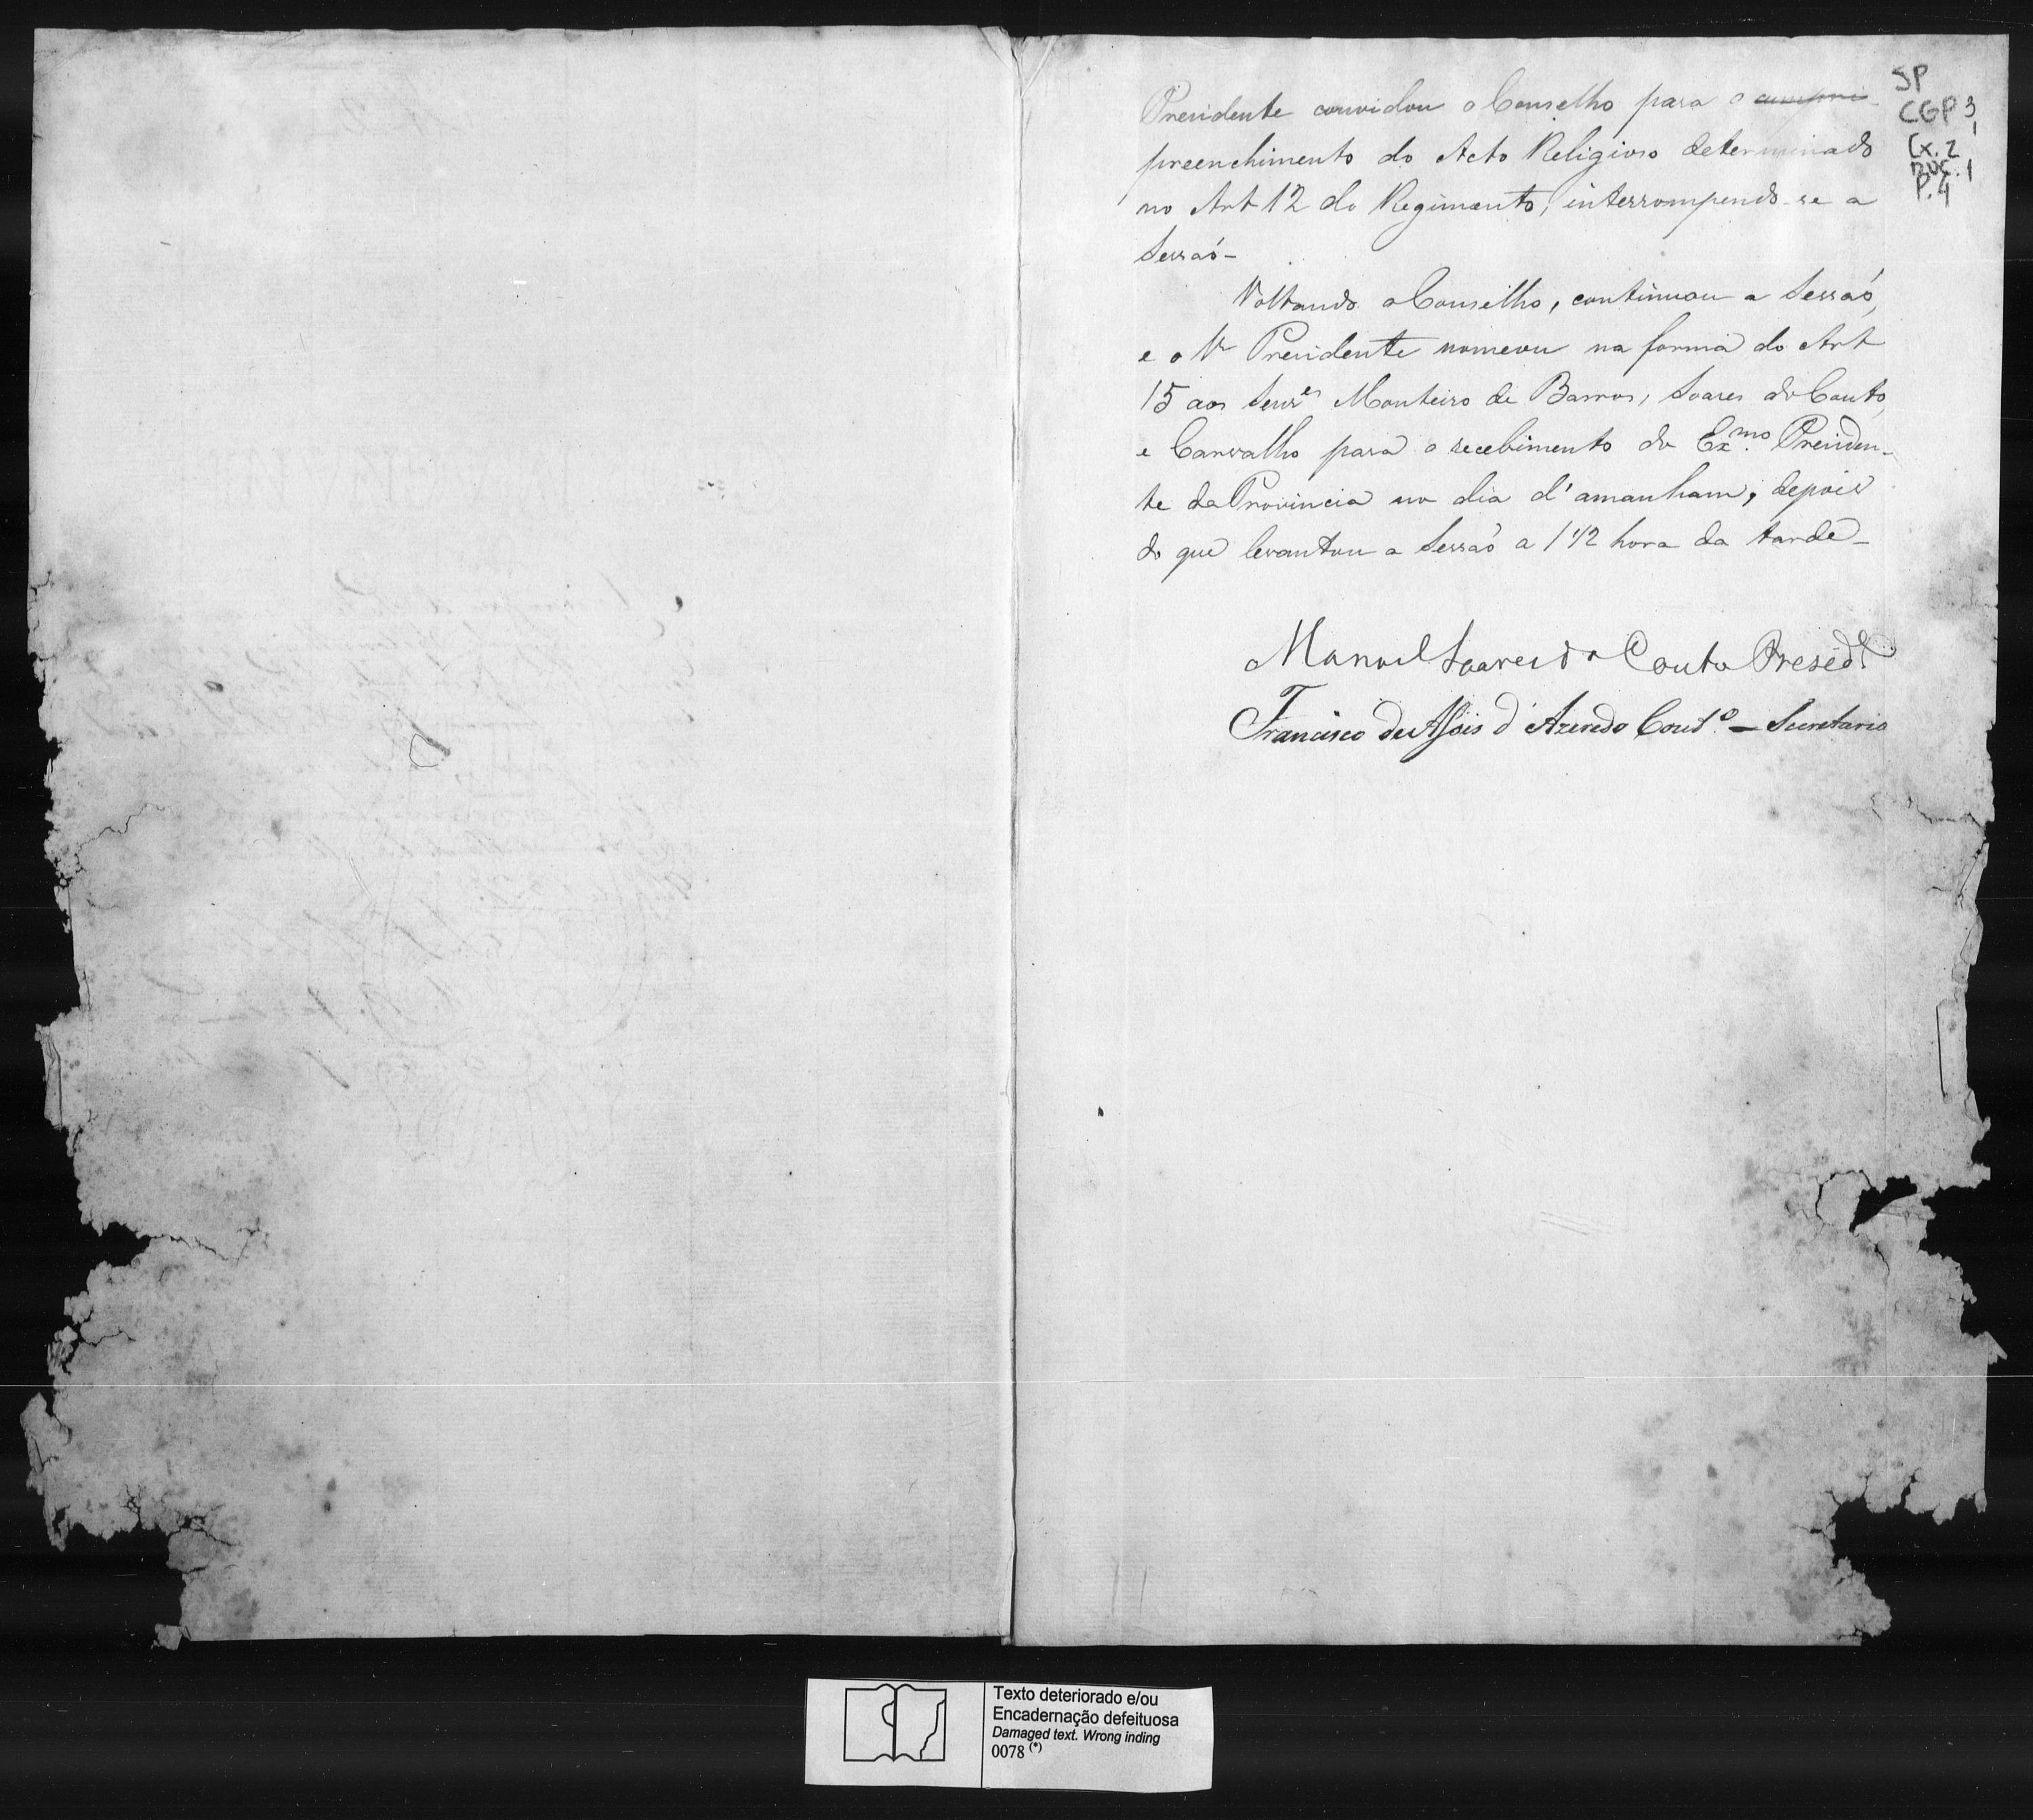 SP
CGP 3,1
Cx. 2
DOC. 1
P. 4
Presidente convidou o Conselho para o cumpri-
preenchimento do Acto Religioso determinado
no Art 12 do Regimento, interrompendo-se a
Sessaõ-
Voltando o Conselho, continuou a Sessaõ,
e o Vr Presidente nomeou na forma do Art
15 aos Senres Monteiro de Barros, Soares do Couto,
e Carvalho para o recebimento do Exmo. Presiden-
te da Provincia no dia d'amanham, depois
do que levantou a Sessaõ a 1 1/2 hora da tarde-
Manoel Soares do Couto Presidte
Francisco de Assis d'Azeredo Coutº. - Secretario
Texto deteriorado e/ou
Encadernação defeituosa
Damaged text. Wrong inding
0078 (*)